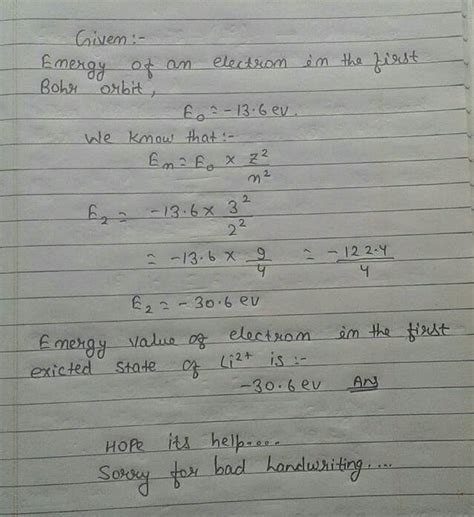 Given :-
Energy of an electron in the first
Bohr orbit,
E₀ = -13.6 ev.
We know that :-
Eₙ = E₀ × z²/n²
E₂ = -13.6 × 3²/2²
= -13.6 × 9/4 = -122.4/4
E₂ = -30.6 ev
Energy value of electron in the first
exicted state of Li²⁺ is :-
-30.6 ev Ans
HOPE its help....
Sorry for bad handwriting....